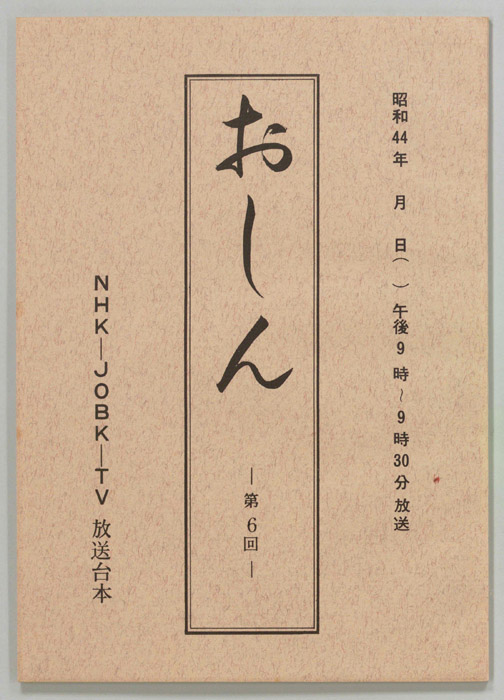 昭和44年　月　日（　）午後9時～9時30分放送
おしん
―第6回―
NHK―JOBK―TV 放送台本